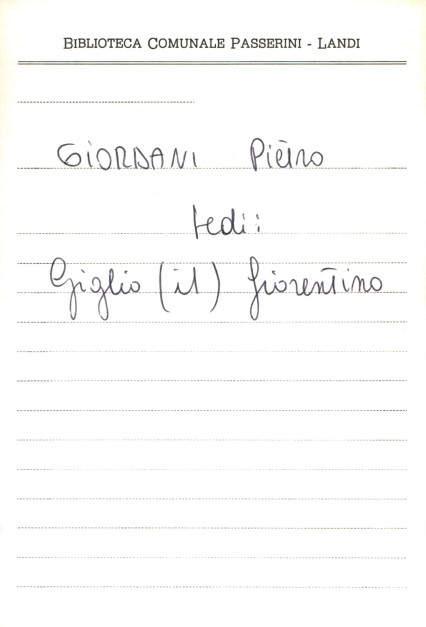 BIBLIOTECA COMUNALE PASSERINI - LANDI
GIORDANI Pietro
Vedi:
Giglio (il) fiorentino